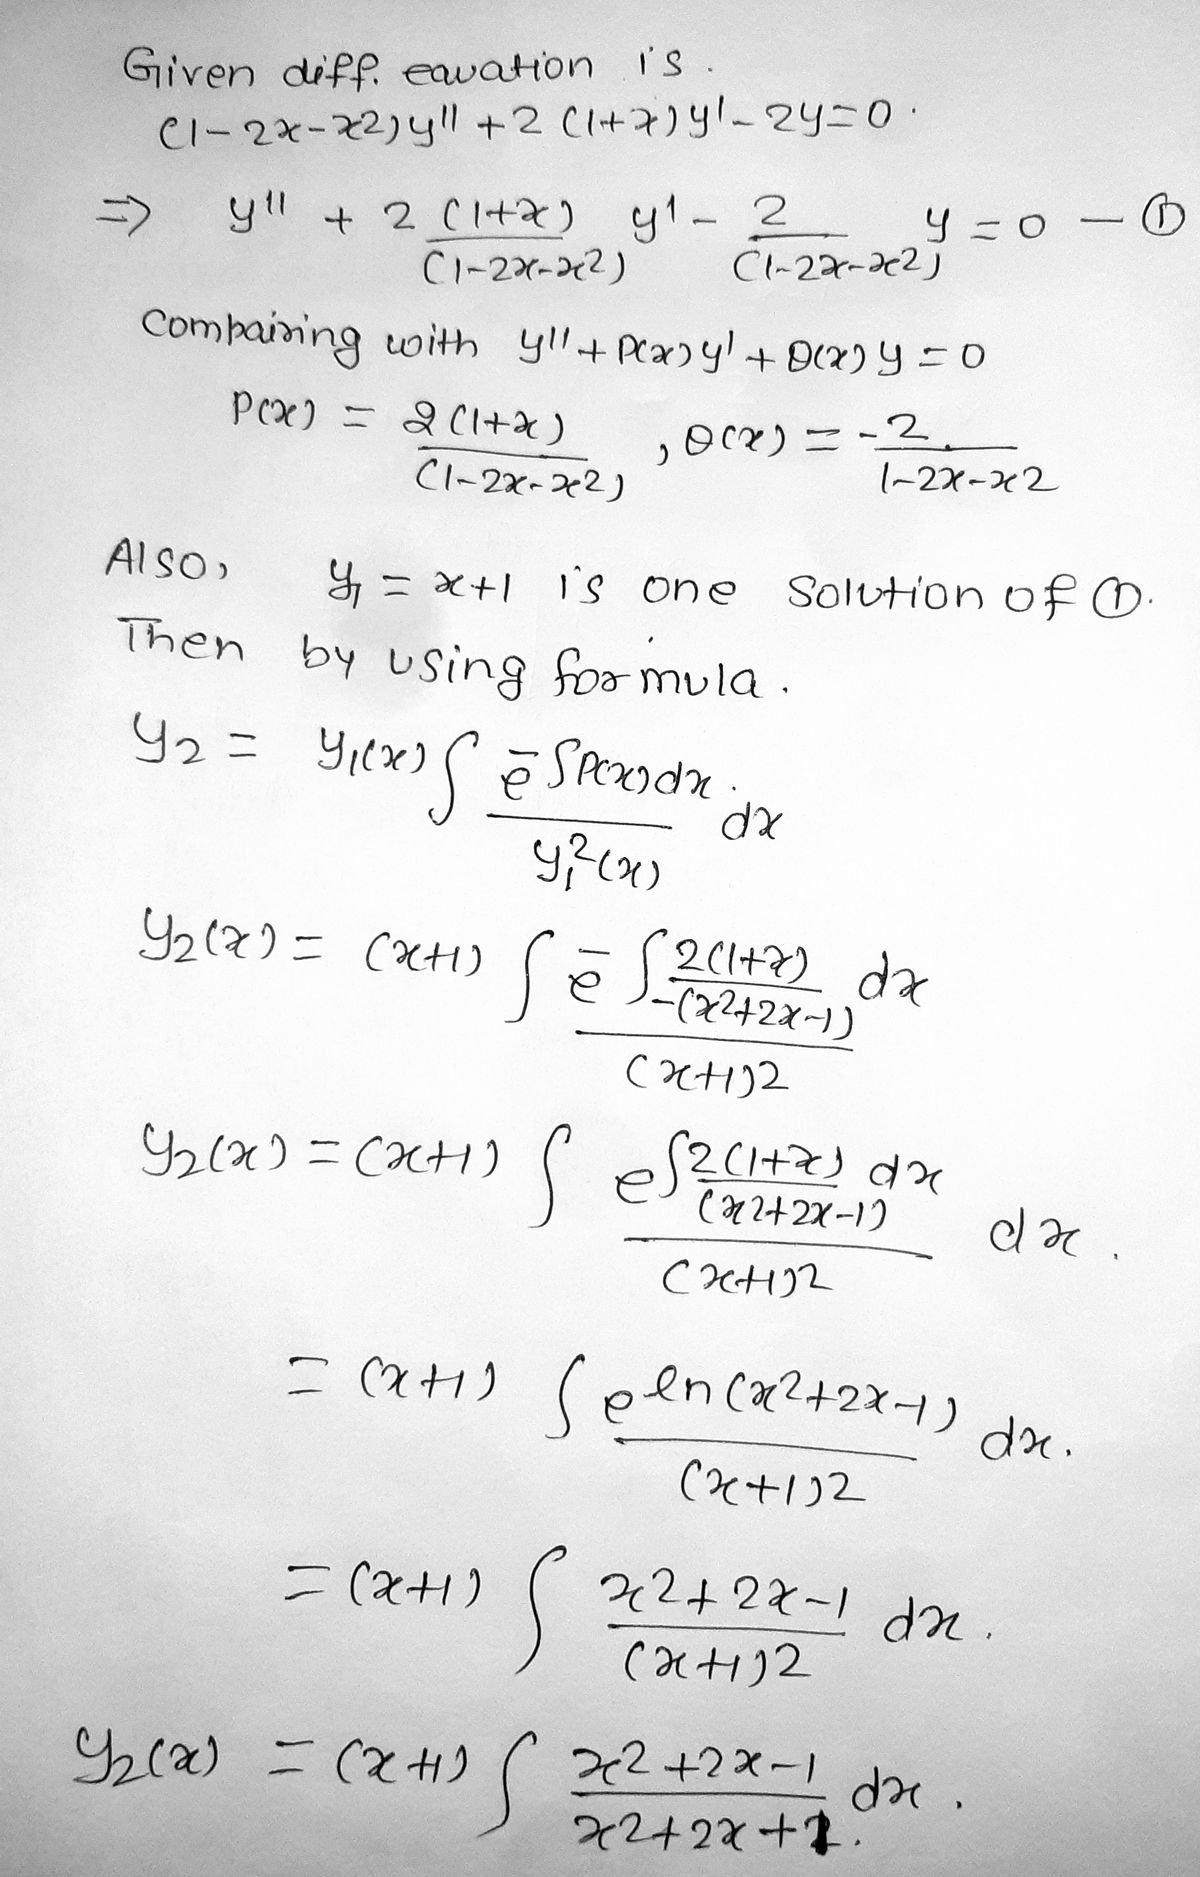 Given diff. eauation is.
(1-2x-x2)y'' + 2(1+x)y' - 2y=0.
=> y'' + 2 (1+x)/(1-2x-x2) y' - 2/(1-2x-x2) y = 0 — ①
Combaising with y'' + P(x)y' + Q(x)y = 0
P(x) = 2(1+x)/(1-2x-x2) , Q(x) = -2/1-2x-x2
Also, y1 = x+1 is one solution of ①.
Then by using formula.
y2 = y1(x) ∫ e^-∫P(x)dx / y1^2(x) dx
y2(x) = (x+1) ∫ e^-∫ 2(1+x)/-(x2+2x-1) dx / (x+1)2
y2(x) = (x+1) ∫ e^∫ 2(1+x)/(x2+2x-1) dx / (x+1)2 dx.
= (x+1) ∫ e^ln(x2+2x-1) / (x+1)2 dx.
= (x+1) ∫ x2+2x-1 / (x+1)2 dx.
y2(x) = (x+1) ∫ x2+2x-1 / x2+2x+1. dx.